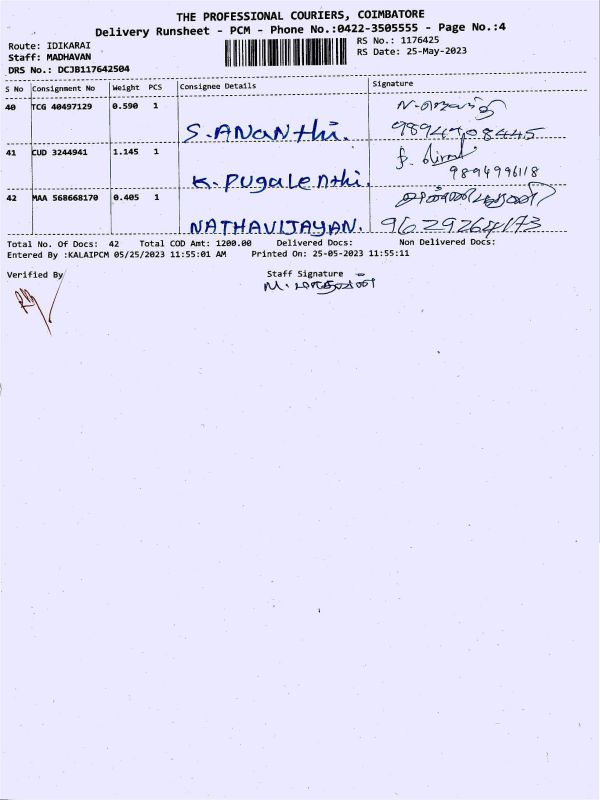 THE PROFESSIONAL COURIERS, COIMBATORE
Delivery Runsheet - PCM - Phone No.:0422-3505555 - Page No.:4
Route: IDIKARAI
RS No.: 1176425
Staff: MADHAVAN
RS Date: 25-May-2023
DRS No.: DCJB117642504
S No Consignment No Weight PCS Consignee Details Signature
40 TCG 40497129 0.590 1
S.ANANthi. 
41 CUD 3244941 1.145 1
9894996118
K. Pugalenthi.
42 MAA 568668170 0.405 1
NATHAVIJAYAN. 9629264173
Total No. Of Docs: 42 Total COD Amt: 1200.00 Delivered Docs: Non Delivered Docs:
Entered By :KALAIPCM 05/25/2023 11:55:01 AM Printed On: 25-05-2023 11:55:11
Verified By Staff Signature
M. மாதவன்